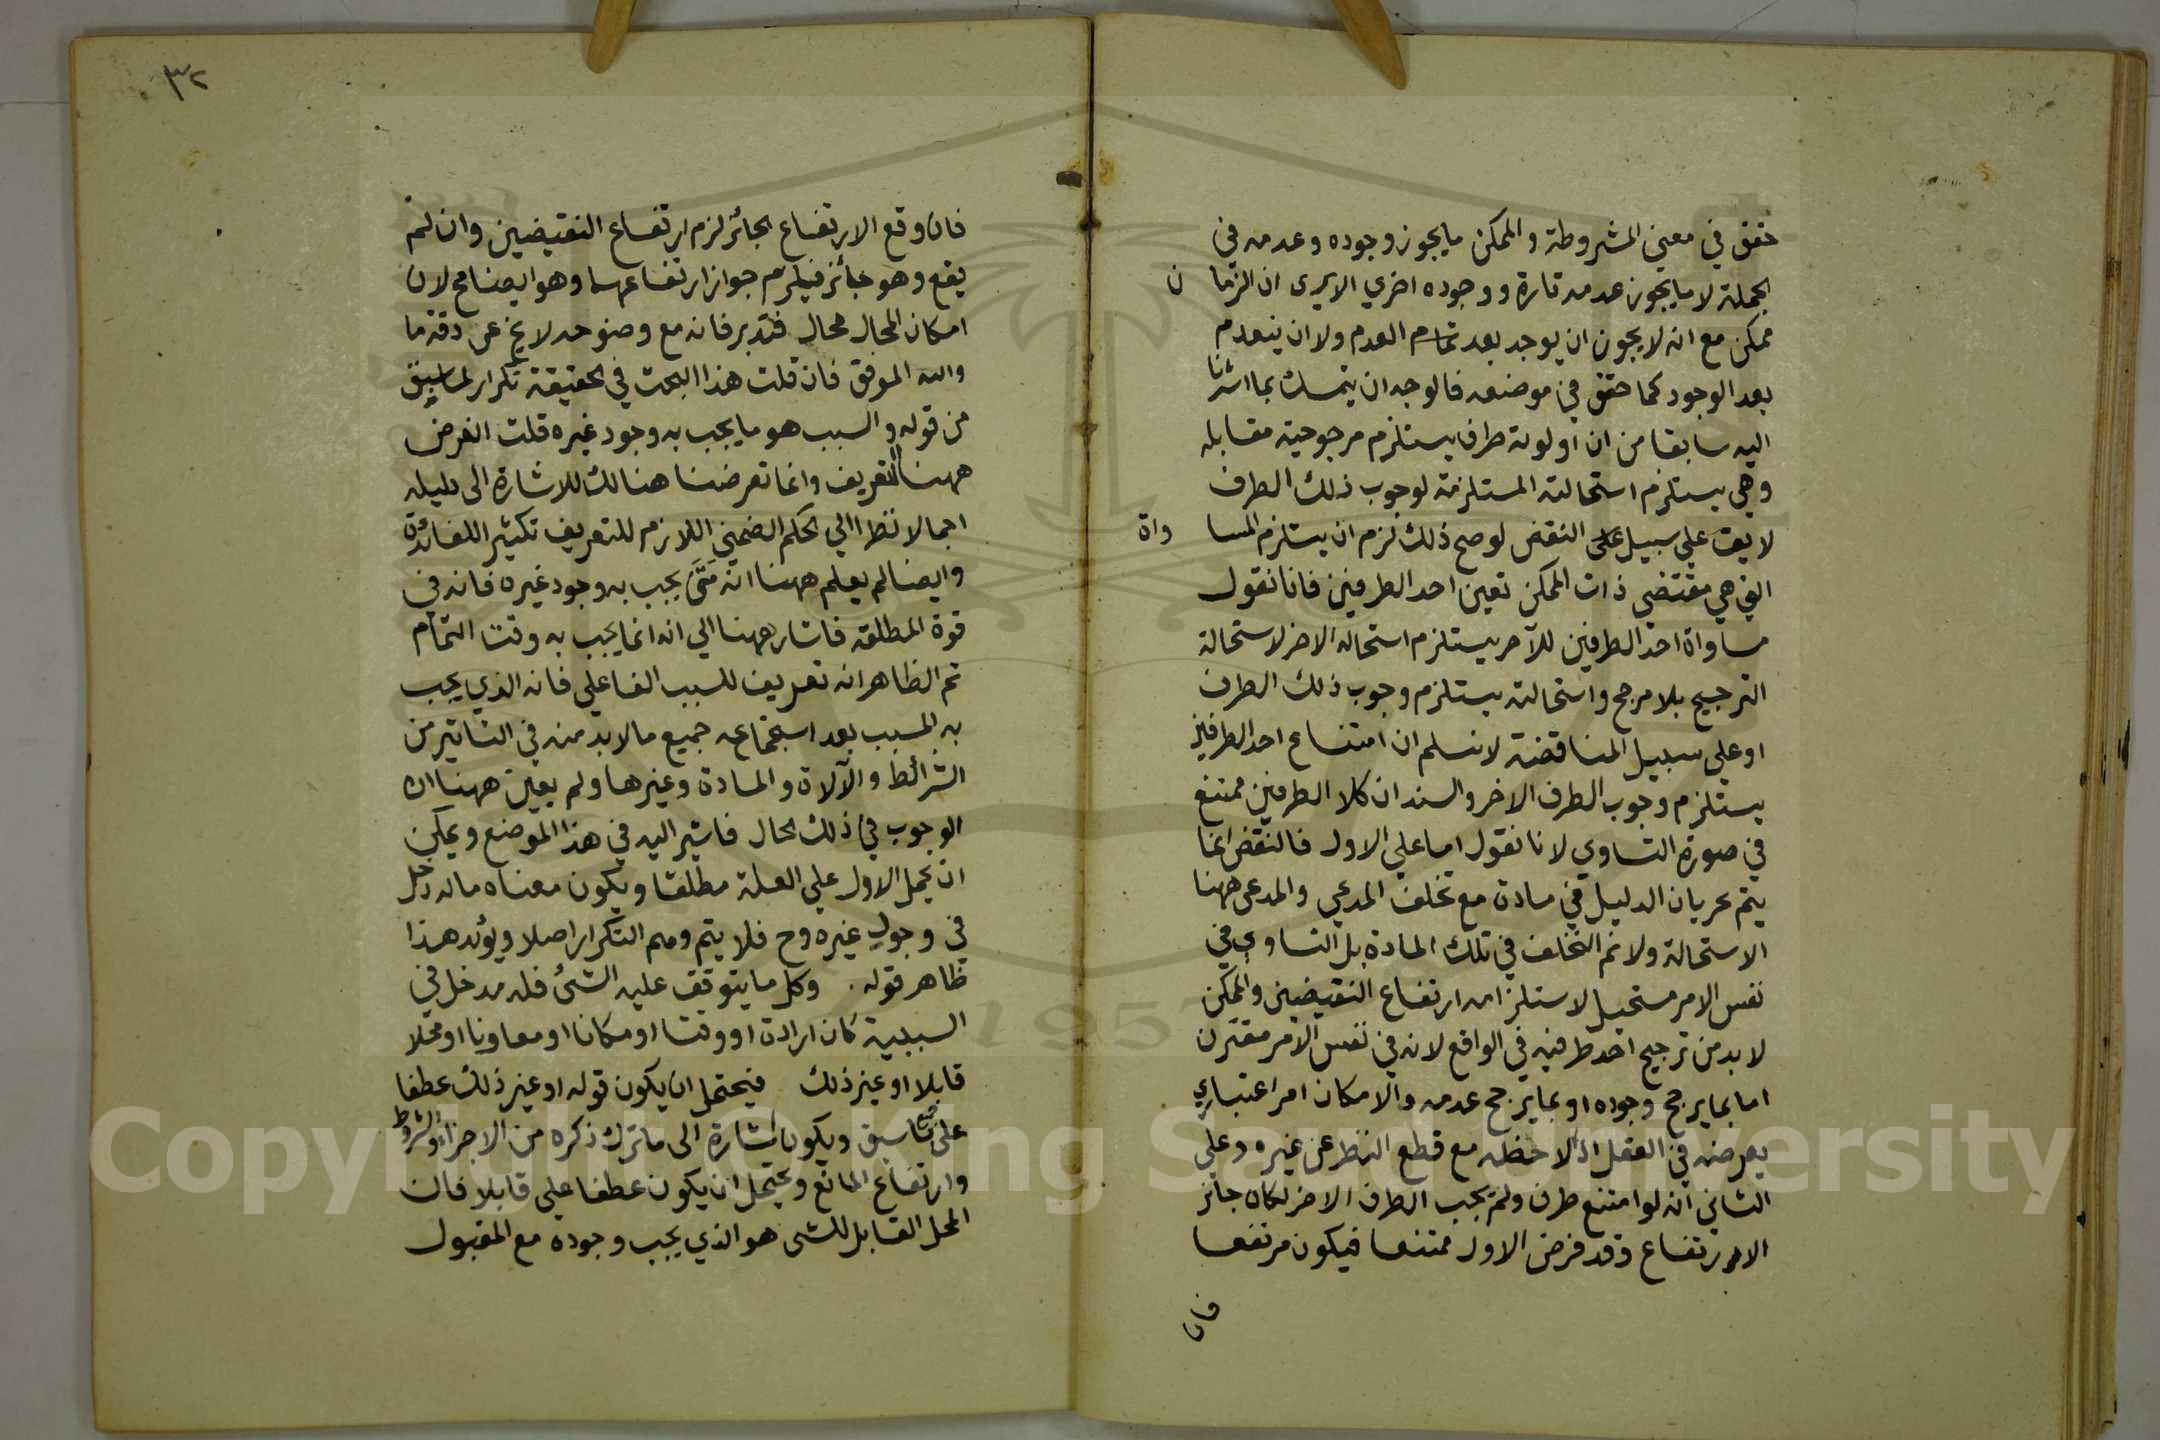 حقق في معني المشروطة والممكن ما يجوز وجوده وعدمه في
الجملة لا ما يجوز عدمه تارة ووجوده اخري الا يري ان الزمان
ممكن مع انه لا يجوز ان يوجد بعد تمام العدم ولا ان ينعدم
بعد الوجود كما حقق في موضعه فالوجه ان يتمسك بما اشرنا
اليه سابقا من ان اولوية طرف يستلزم مرجوحية مقابله
وهي يستلزم استحالته المستلزمة لوجوب ذلك الطرف
لا يق علي سبيل النقض لو صح ذلك لزم ان يستلزم المساواة
التي هي مقتضي ذات الممكن تعين احد الطرفين فانا نقول
مساواة احد الطرفين للآخر يستلزم استحالة الاخر لاستحالة
الترجيح بلا مرجح واستحالته يستلزم وجوب ذلك الطرف
او علي سبيل المناقضة لا نسلم ان امتناع احد الطرفين
يستلزم وجوب الطرف الاخر والسند ان كلا الطرفين ممتنع
في صورة التساوي لانا نقول اما علي الاول فالنقض انما
يتم بجريان الدليل في مادة مع تخلف المدعي والمدعي ههنا
الاستحالة ولا نم التخلف في تلك المادة بل التساوي في
نفس الامر مستحيل لاستلزامه ارتفاع النقيضين والممكن
لا بد من ترجيح احد طرفيه في الواقع لانه في نفس الامر مقترن
اما بما يرجح وجوده او بما يرجح عدمه والامكان امر اعتباري
يعرضه في العقل اذا لاحظه مع قطع النظر عن غيره وعلي
الثاني انه لو امتنع طرف ولم يجب الطرف الاخر لكان جائز
الارتفاع وقد فرض الاول ممتنعا فيكون مرتفعا
فان
٣٢
فان وقع الارتفاع الجائز لزم ارتفاع النقيضين وان لم
يقع وهو جائز فيلزم جواز ارتفاعهما وهو ايضا مح لان
امكان المحال محال فتدبر فانه مع وضوحه لا يخ عن دقة ما
والله الموفق فان قلت هذا البحث في الحقيقة تكرار لما سبق
من قوله والسبب هو ما يجب به وجود غيره قلت الغرض
ههنا التعريف وانما تعرضنا هنالك للاشارة الى دليله
اجمالا نظرا الي الحكم الضمني اللازم للتعريف تكثيرا للفائدة
وايضا لم يعلم ههنا انه متى يجب به وجود غيره فانه في
قوة المطلقة فاشار ههنا الي انه انما يجب به وقت التمام
ثم الظاهر انه تعريف للسبب الفاعلي فانه الذي يجب
به المسبب بعد استجماعه جميع ما لا بد منه في التاثير من
الشرائط والآلاة والمادة وغيرها ولم يعين ههنا ان
الوجوب في ذلك الحال فاشير اليه في هذا الموضع ويمكن
ان يحمل الاول علي العلة مطلقا ويكون معناه ما له دخل
في وجوب غيره وح فلا يتم وهم التكرار اصلا ويؤيد هذا
ظاهر قوله وكل ما يتوقف عليه الشئ فله مدخل في
السببية كان ارادة او وقتا او مكانا او معاونا او محلا
قابلا او غير ذلك فيحتمل ان يكون قوله او غير ذلك عطفا
علي جميع ما سبق ويكون اشارة الى ما ترك ذكره من الاجزاء والشروط
وارتفاع المانع ويحتمل ان يكون عطفا علي قابلا فان
المحل القابل للشئ هو الذي يجب وجوده مع المقبول
Copyright © King Saud University
1957